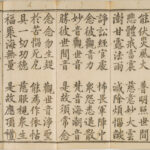 能伏災風火　普明照世間
悲體戒雷震　慈意妙大雲
澍甘露法雨　滅除煩惱燄
諍訟經官處　怖畏軍陣中
念彼觀音力　眾怨悉退散
妙音觀世音　梵音海潮音
勝彼世間音　是故須常念
念念勿生疑　觀世音淨聖
於苦惱死厄　能為作依怙
具一切功德　慈眼視眾生
福聚海無量　是故應頂禮